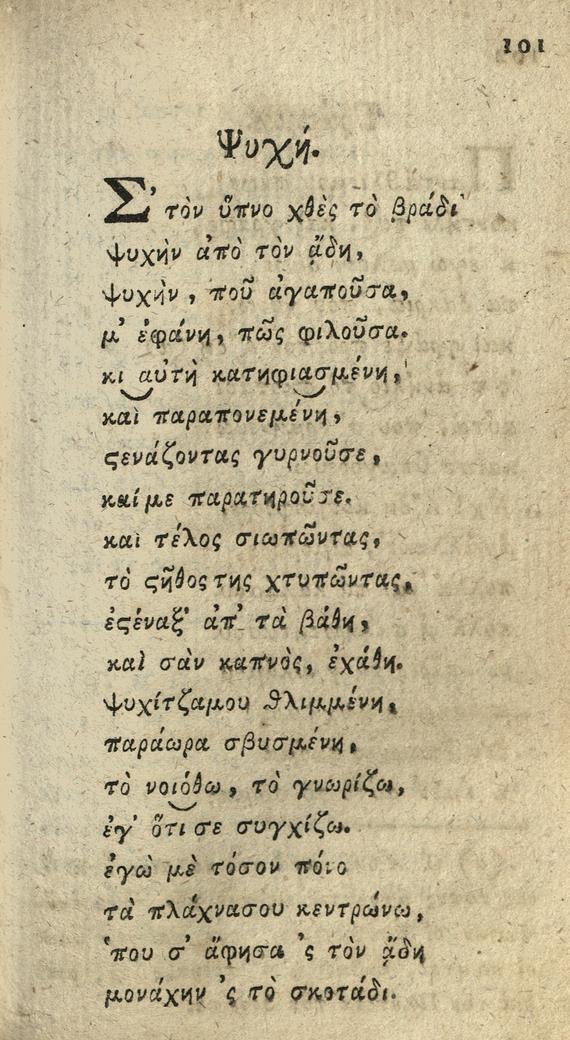 101
Ψυχή.
Σ' τὸν ὕπνο χθὲς τὸ βράδι
ψυχὴν ἀπὸ τὸν ᾅδη,
ψυχὴν, ποῦ ἀγαποῦσα,
μ' ἐφάνη, πῶς φιλοῦσα.
κι αὐτὴ κατηφιασμένη,
καὶ παραπονεμένη,
ϛενάζοντας γυρνοῦσε,
καί με παρατηροῦσε.
καὶ τέλος σιωπῶντας,
τὸ ϛῆθος της χτυπῶντας,
ἐϛέναξ' ἀπ' τὰ βάθη,
καὶ σὰν καπνὸς, ἐχάθη.
ψυχίτζαμου θλιμμένη,
παράωρα σβυσμένη,
τὸ νοιόθω, τὸ γνωρίζω,
ἐγ' ὅτι σε συγχίζω.
ἐγὼ μὲ τόσον πόνο
τὰ πλάχνασου κεντρώνω,
'που σ' ἄφησα 'ς τὸν ᾅδη
μονάχην 'ς τὸ σκοτάδι.